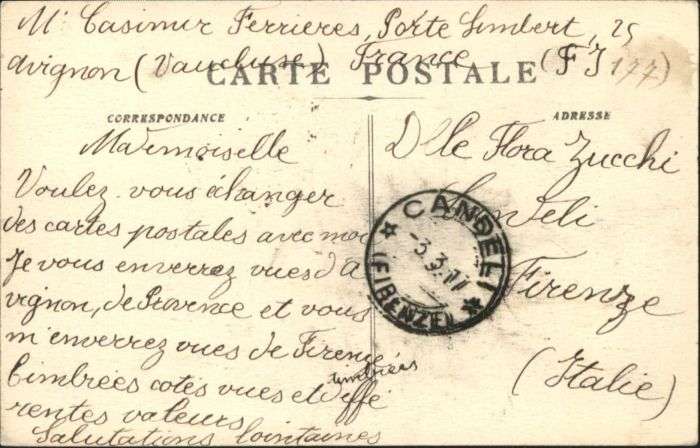 Mr Casimir Ferrières, Porte Limbert, 25
avignon (Vaucluse) France (FJ177)
CARTE POSTALE
CORRESPONDANCE
Mademoiselle
Voulez vous échanger
des cartes postales avec moi
Je vous enverrez vues d'A
vignon, de Provence et vous
m'enverrez vues de Firenze
timbrées cotés vues et diffé
timbrées
rentes valeurs
Salutations lointaines
ADRESSE
Dlle Flora Zucchi
Candeli
Firenze
(Italie)
CANDELI
3.3.11
(FIRENZE)